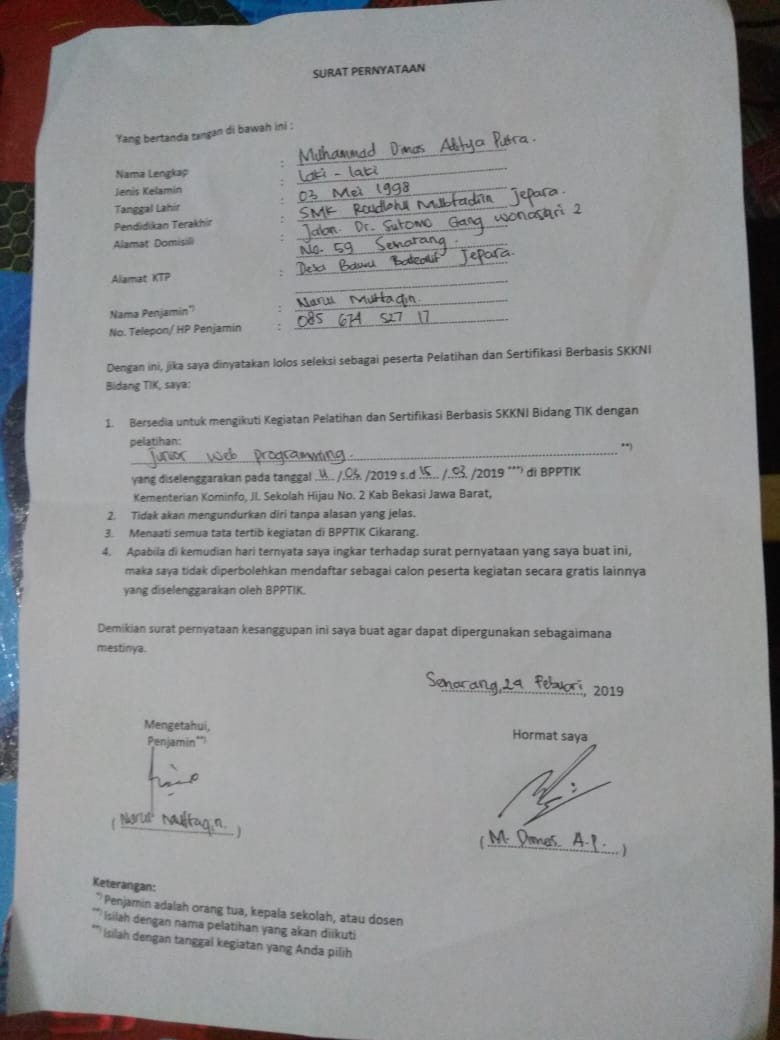 SURAT PERNYATAAN
Yang bertanda tangan di bawah ini :
Nama Lengkap : Muhammad Dimas Aditya Putra.
Jenis Kelamin : Laki - laki
Tanggal Lahir : 03 Mei 1998
Pendidikan Terakhir : SMK Roudlotul Mubtadiin Jepara.
Alamat Domisili : Jalan. Dr. Sutomo Gang Wonosari 2
No. 59 Semarang.
Alamat KTP : Desa Bawu Batealit Jepara.
Nama Penjamin*) : Narul Muttaqin.
No. Telepon/ HP Penjamin : 085 674 527 17
Dengan ini, jika saya dinyatakan lolos seleksi sebagai peserta Pelatihan dan Sertifikasi Berbasis SKKNI
Bidang TIK, saya:
1. Bersedia untuk mengikuti Kegiatan Pelatihan dan Sertifikasi Berbasis SKKNI Bidang TIK dengan
pelatihan:
Junior Web Programming. **)
yang diselenggarakan pada tanggal 11 /03 /2019 s.d 15 / 03 /2019 ***) di BPPTIK
Kementerian Kominfo, Jl. Sekolah Hijau No. 2 Kab Bekasi Jawa Barat,
2. Tidak akan mengundurkan diri tanpa alasan yang jelas.
3. Menaati semua tata tertib kegiatan di BPPTIK Cikarang.
4. Apabila di kemudian hari ternyata saya ingkar terhadap surat pernyataan yang saya buat ini,
maka saya tidak diperbolehkan mendaftar sebagai calon peserta kegiatan secara gratis lainnya
yang diselenggarakan oleh BPPTIK.
Demikian surat pernyataan kesanggupan ini saya buat agar dapat dipergunakan sebagaimana
mestinya.
Semarang, Februari, 2019
Mengetahui,
Penjamin**)
Hormat saya
( Narul Muttaqin. )
( M. Dimas. A.P. )
Keterangan:
*) Penjamin adalah orang tua, kepala sekolah, atau dosen
**) Isilah dengan nama pelatihan yang akan diikuti
***) Isilah dengan tanggal kegiatan yang Anda pilih